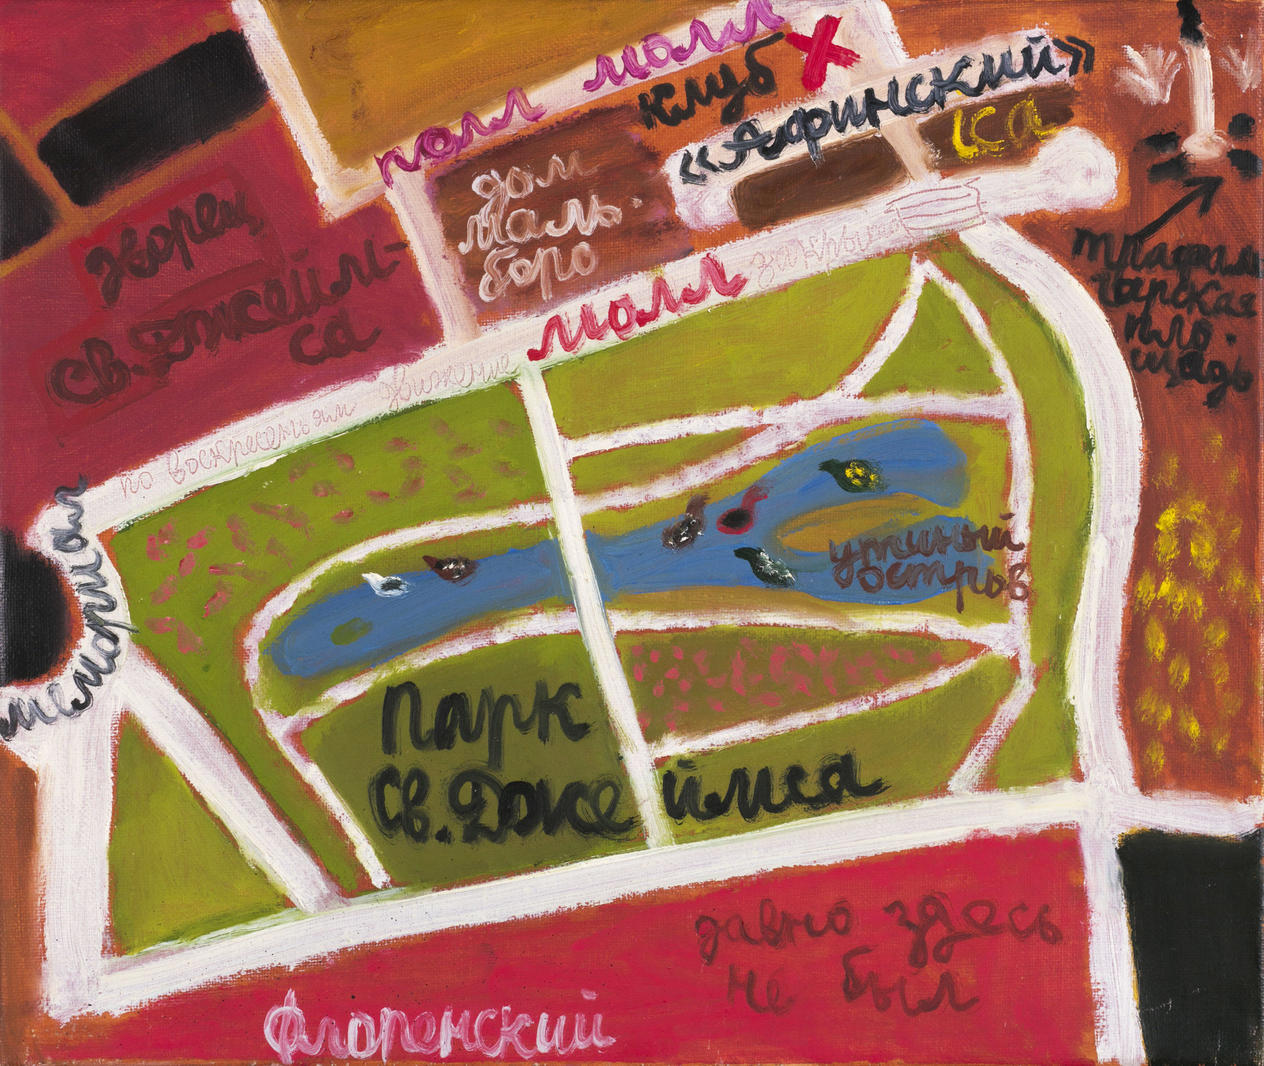 полл молл
клуб X
«Афинский»
дом
маль-
боро
дворец
св. Джейм-
са
трафаль
гарская
пло-
щадь
молл
по воскресеньям движение закрыто
мемориал
утиный
остров
Парк
св. Джеймса
давно здесь
не был
Флоренский